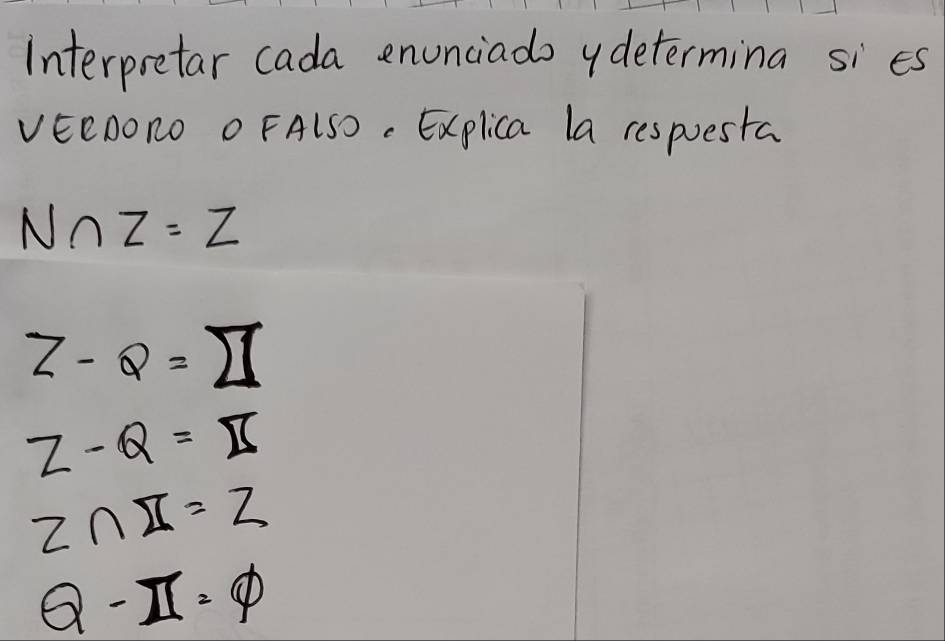 Interpretar cada enunciado y determina si es
VERDORO O FALSO. Explica la respuesta
N ∩ Z = Z
Z - Q = 𝕀
Z - Q = 𝕀
Z ∩ 𝕀 = Z
Q - 𝕀 = ϕ